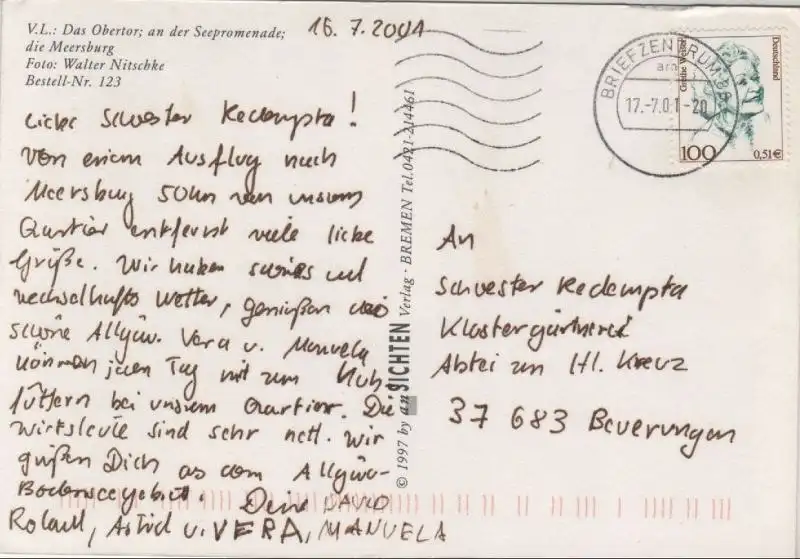 V.L.: Das Obertor; an der Seepromenade;
die Meersburg
Foto: Walter Nitschke
Bestell-Nr. 123
16.7.2001
Liebe Schwester Redempta!
Von einem Ausflug nach
Meersburg 50km von unserem
Quartier entfernt viele liebe
Grüße. Wir haben
wechselhaftes Wetter, genießen das
schöne Allgäu. Vera u. Manuela
können jeden Tag mit zum Kuh-
füttern bei unserem Quartier. Die
Wirtsleute sind sehr nett. Wir
grüßen Dich aus dem Allgäu-
Bodenseegebiet. Deine DAVID
Roland, Astrid u. VERA, MANUELA
© 1997 by anSICHTEN Verlag · BREMEN Tel.0421-214461
BRIEFZENTRUM 88
17.-7.01-20
Grethe Weiser
Deutschland
100
0,51€
An
Schwester Redempta
Klostergärtnerei
Abtei zum Hl. Kreuz
37 683 Beverungen